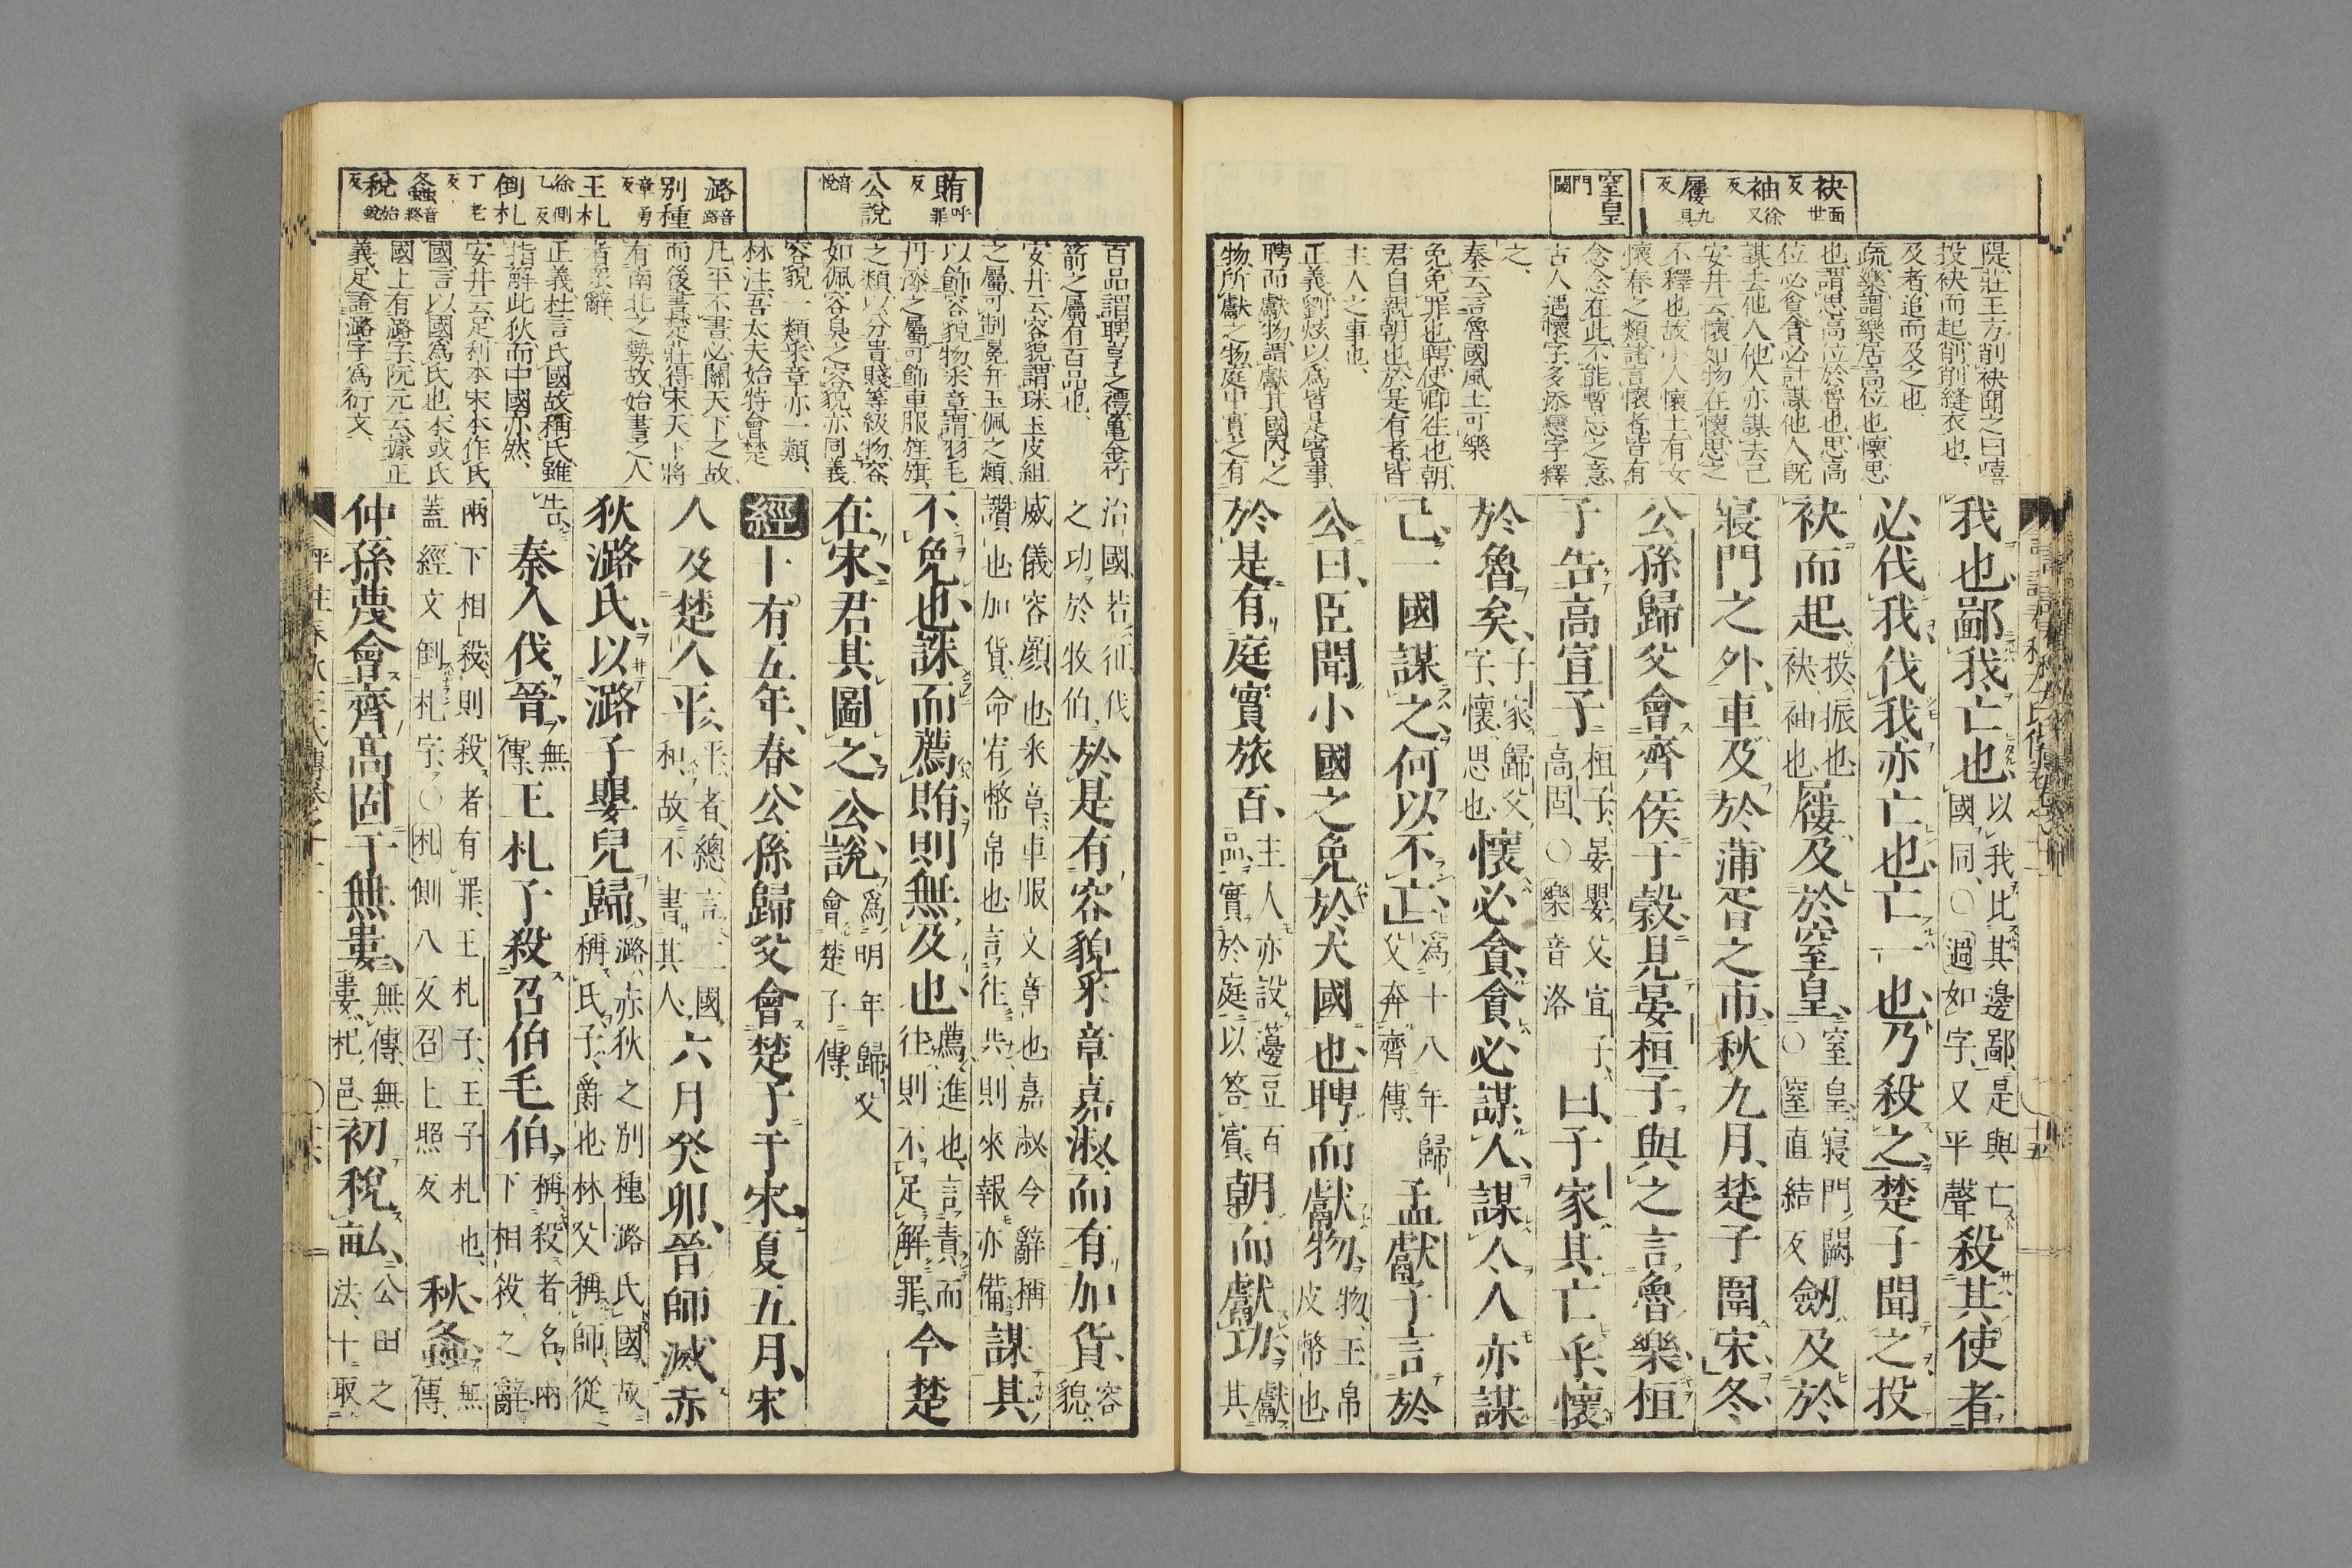 袂面世反
袖徐又反
屨九具反
窒皇門闕
隄莊王方削袂聞之曰嘻
投袂而起削削縫衣也
及者追而及之也
疏樂謂樂居高位也懷思
也謂思高位於魯也思高
位必貪貪必計謀他人旣
謀去他人他人亦謀去己
安井云懷如物在懷思之
不釋也故小人懷土有女
懷春之類諸言懷者皆有
念念在此不能暫忘之意
古人遇懷字多添戀字釋
之
秦云言魯國風土可樂
免免罪也聘使卿往也朝
君自親朝也於是有者皆
主人之事也
正義劉炫以爲皆是賓事
聘而獻物謂獻其國內之
物所獻之物庭中實之有
我也鄙我亡也以我比其邊鄙是與亡國同〇過如字又平聲殺其使者
必伐我伐我亦亡也亡一也乃殺之楚子聞之投
袂而起投振也袂袖也屨及於窒皇窒皇寢門闕〇窒直結反劒及於
寢門之外車及於蒲胥之市秋九月楚子圍宋冬
公孫歸父會齊侯于穀見晏桓子與之言魯樂桓
子告高宣子桓子晏嬰父宣子高固〇樂音洛曰子家其亡乎懷
於魯矣子家歸父字懷思也懷必貪貪必謀人謀人人亦謀
己一國謀之何以不亡爲十八年歸父奔齊傳孟獻子言於
公曰臣聞小國之免於大國也聘而獻物物玉帛皮幣也
於是有庭實旅百主人亦設籩豆百品實於庭以答賓朝而獻功獻其
賄呼罪反
公說音悅
潞音路
別種章勇反
王札徐側乙反
倒札丁老反
螽音終
稅始銳反
百品謂聘享之禮龜金竹
箭之屬有百品也
安井云容貌謂珠玉皮組
之屬可制冕弁玉佩之類
以飾容貌物采章謂羽毛
丹漆之屬可飾車服旌旗
之類以分貴賤等級物容
如佩容臭之容貌亦同義
容貌一類采章亦一類
林注吾大夫始特會楚
凡平不書必關天下之故
而後書楚莊得宋天下將
有南北之勢故始書之人
者衆辭
正義杜言氏國故稱氏雖
指解此狄而中國亦然
安井云足利本宋本作氏
國言以國爲氏也本或氏
國上有潞字阮元云據正
義足證潞字爲衍文
治國若征伐之功於牧伯於是有容貌采章嘉淑而有加貨容貌
威儀容顏也采章車服文章也嘉淑令辭稱讚也加貨命宥幣帛也言往共則來報亦備謀其
不免也誅而薦賄則無及也薦進也言責而往則不足解罪今楚
在宋君其圖之公說爲明年歸父會楚子傳
經十有五年春公孫歸父會楚子于宋夏五月宋
人及楚人平平者總言二國和故不書其人六月癸卯晉師滅赤
狄潞氏以潞子嬰兒歸潞赤狄之別種潞氏國故稱氏子爵也林父稱師從
告秦人伐晉無傳王札子殺召伯毛伯稱殺者名兩下相殺之辭
兩下相殺則殺者有罪王札子王子札也蓋經文倒札字〇札側八反召上照反秋螽無傳
仲孫蔑會齊高固于無婁無傳無婁杞邑初稅畝公田之法十取